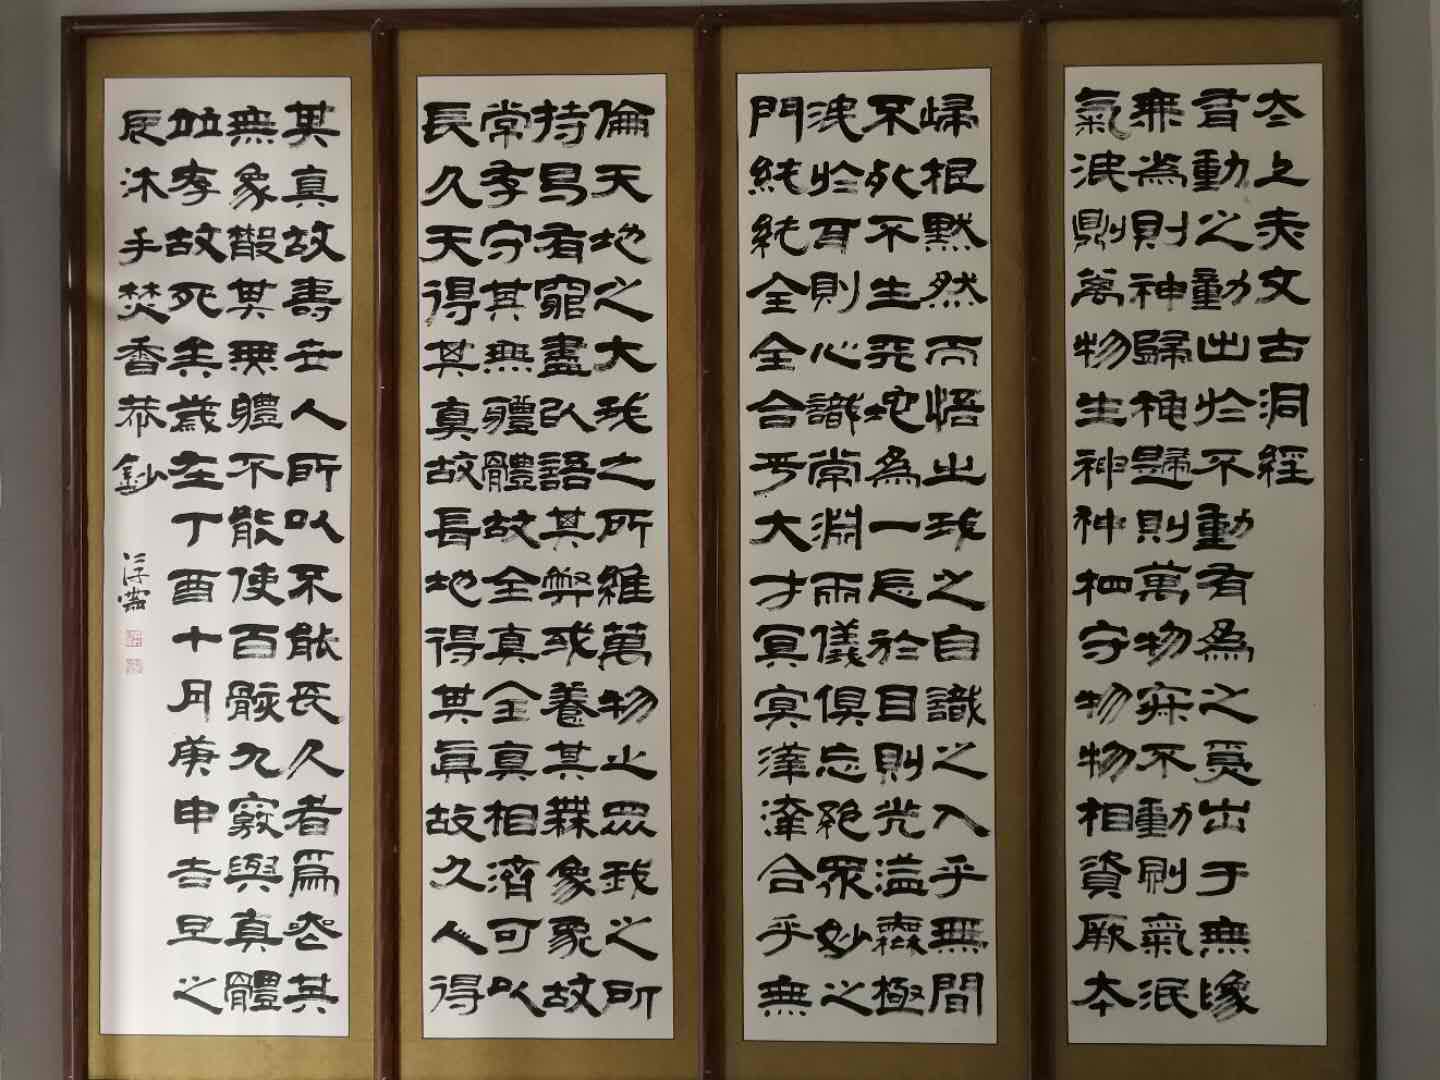 太上赤文古洞經
有動之動出於不動有為之為出于無為
無為則神歸神歸則萬物寂不動則氣泯
氣泯則萬物生神神相守物物相資厥本
歸根默然而悟之我之自識之入乎無間
不死不生天地為一忘於目則光溢無極
泯於耳則心識常淵兩儀俱忘絕眾妙之
門純純全全合乎大方冥冥涬涬合乎無
倫天地之大我之所維萬物之眾我之所
持曷有窮盡以語其弊哉養其無象象故
常存守其無體體故全真全真相濟可以
長久天得其真故長地得其真故久人得
其真故壽世人所以不能長久者為喪其
無象散其無體不能使百骸九竅與真體
並存故死矣歲在丁酉十月庚申吉旦之
辰沐手焚香恭鈔